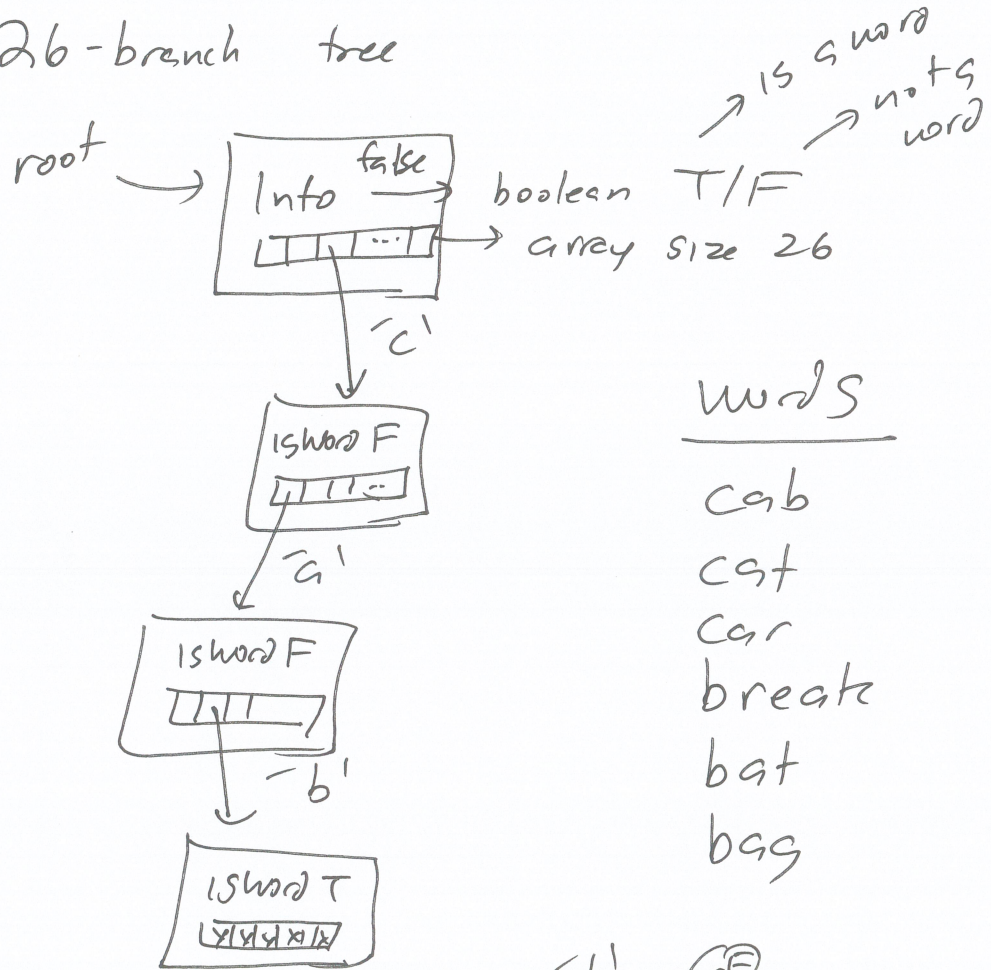 26-branch tree
→ is a word
→ not a word
root
Info false
→ boolean T/F
→ array size 26
...
'c'
isword F
'a'
isword F
'b'
isword T
x x x x x
words
cab
cat
car
break
bat
bag